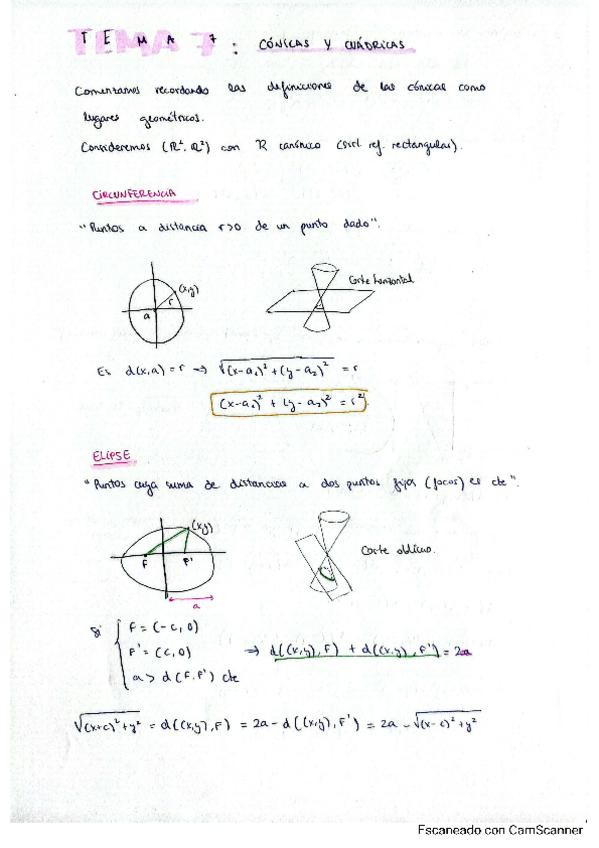 TEMA 7: CÓNICAS Y CUÁDRICAS
Comenzamos recordando las definiciones de las cónicas como
lugares geométricos.
Consideremos (ℝ², ℝ²) con R canónico (sist. ref. rectangular).
CIRCUNFERENCIA
"Puntos a distancia r>0 de un punto dado".
(x,y)
r
a
Corte horizontal
Es d(x,a) = r → √(x-a₁)² + (y-a₂)² = r
(x-a₁)² + (y-a₂)² = r²
ELIPSE
"Puntos cuya suma de distancias a dos puntos fijos (focos) es cte".
(x,y)
F F'
a
Corte oblicuo.
Si { F = (-c, 0)
F' = (c, 0) → d((x,y), F) + d((x,y), F') = 2a
a > d(F, F') cte
√(x+c)² + y² = d((x,y), F) = 2a - d((x,y), F') = 2a - √(x-c)² + y²
Escaneado con CamScanner